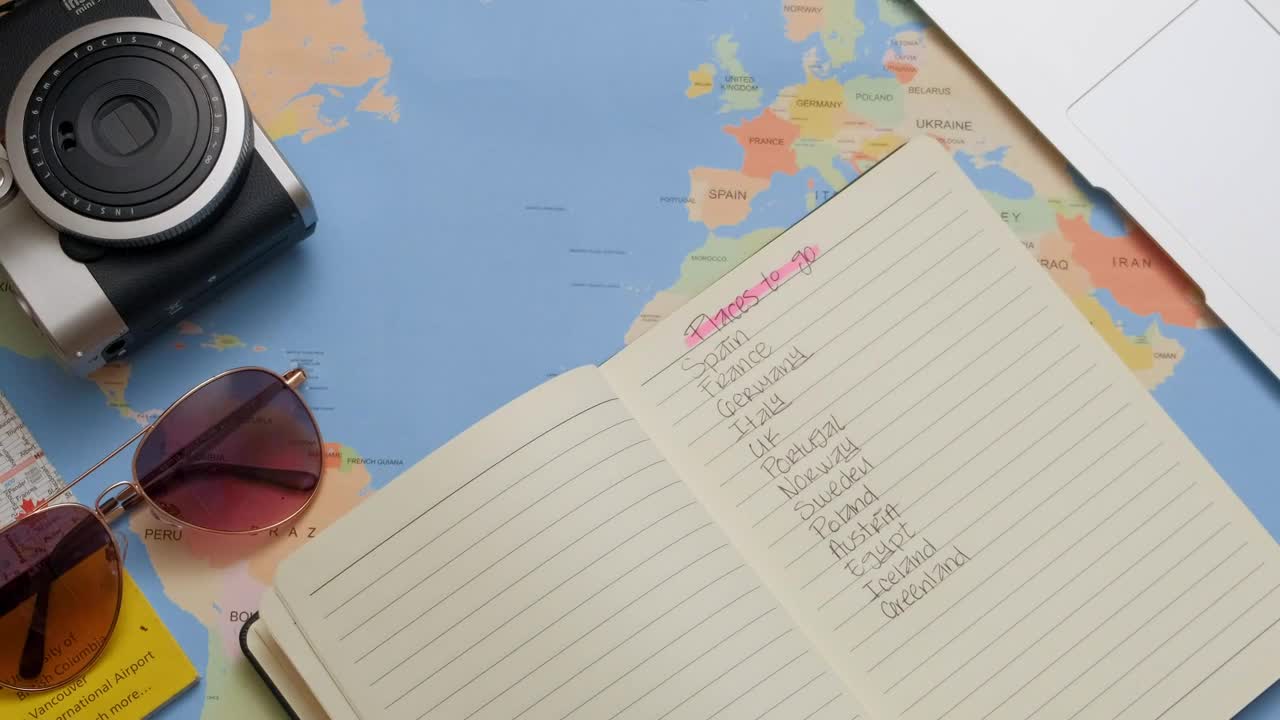 mini
60mm FOCUS RANGE 0.3m ~ ∞
LENS
INSTAX
NORWAY
LATVIA
LITHUANIA
UNITED KINGDOM
GERMANY
POLAND
BELARUS
FRANCE
UKRAINE
PORTUGAL
SPAIN
MOROCCO
IRAN
OMAN
FRENCH GUIANA
PERU
BRAZ
BO
Places to go
Spain
France
Germany
Italy
UK
Portugal
Norway
Sweden
Poland
Austria
Egypt
Iceland
Greenland
British Columbia
Vancouver
International Airport
more...